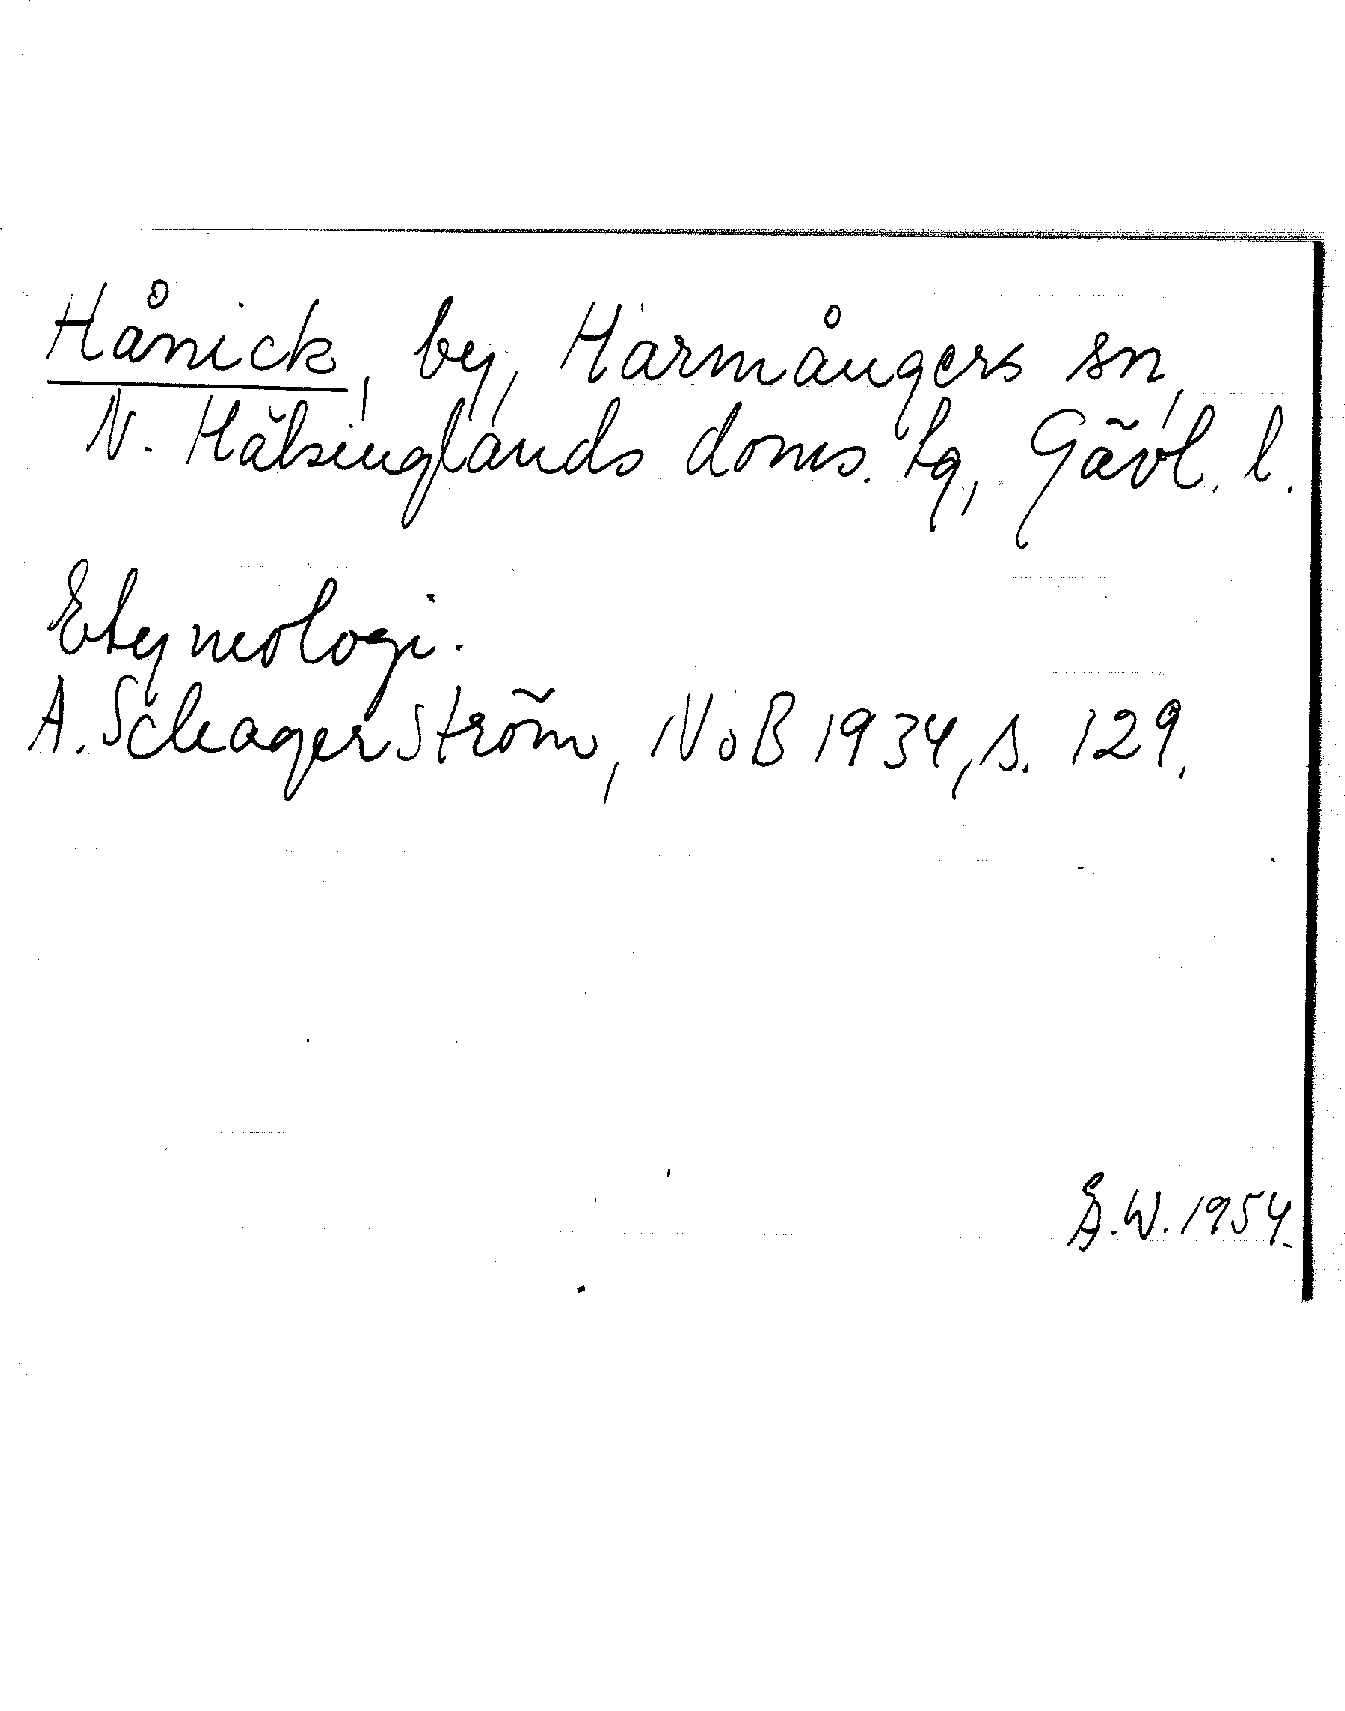 Hånick, by, Harmångers sn,
N. Hälsinglands doms. tg, Gävl. l.
Etymologi.
A. Schagerström, NoB 1934, s. 129.
E.W. 1954.